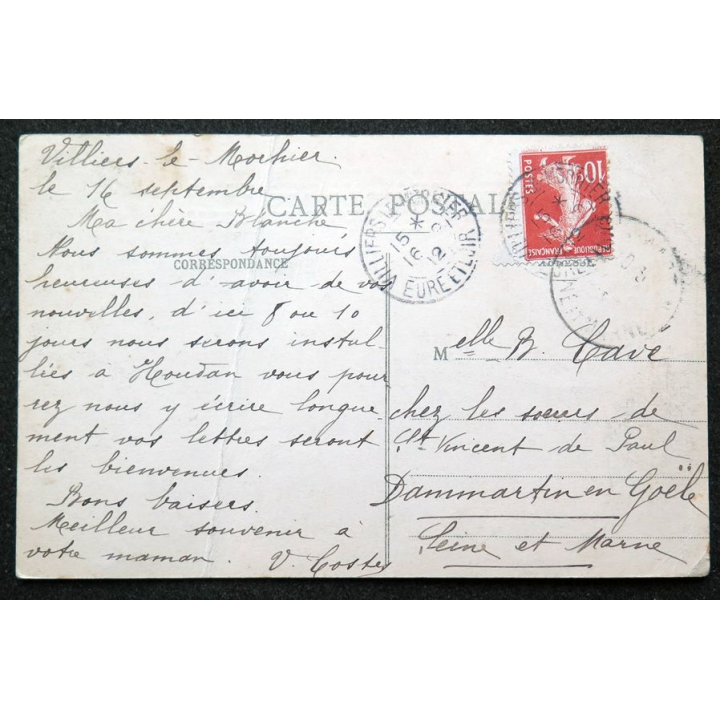 Villiers-le-Morhier.
le 16 septembre
Ma chère Blanche
Nous sommes toujours
heureuses d'avoir de vos
nouvelles, d'ici 8 ou 10
jours nous serons instal-
lées à Houdan vous pour
rez nous y écrire longue-
ment vos lettres seront
les bienvenues.
Bons baisers.
Meilleur souvenir à
votre maman. V. Costes
CARTE POSTALE
CORRESPONDANCE
VILLIERS-LE-MORHIER
15 *
16 -9
12
EURE ET LOIR
10c
POSTES
REPUBLIQUE FRANÇAISE
Melle B. Cavé
chez les sœurs de
St Vincent de Paul
Dammartin en Goële
Seine et Marne